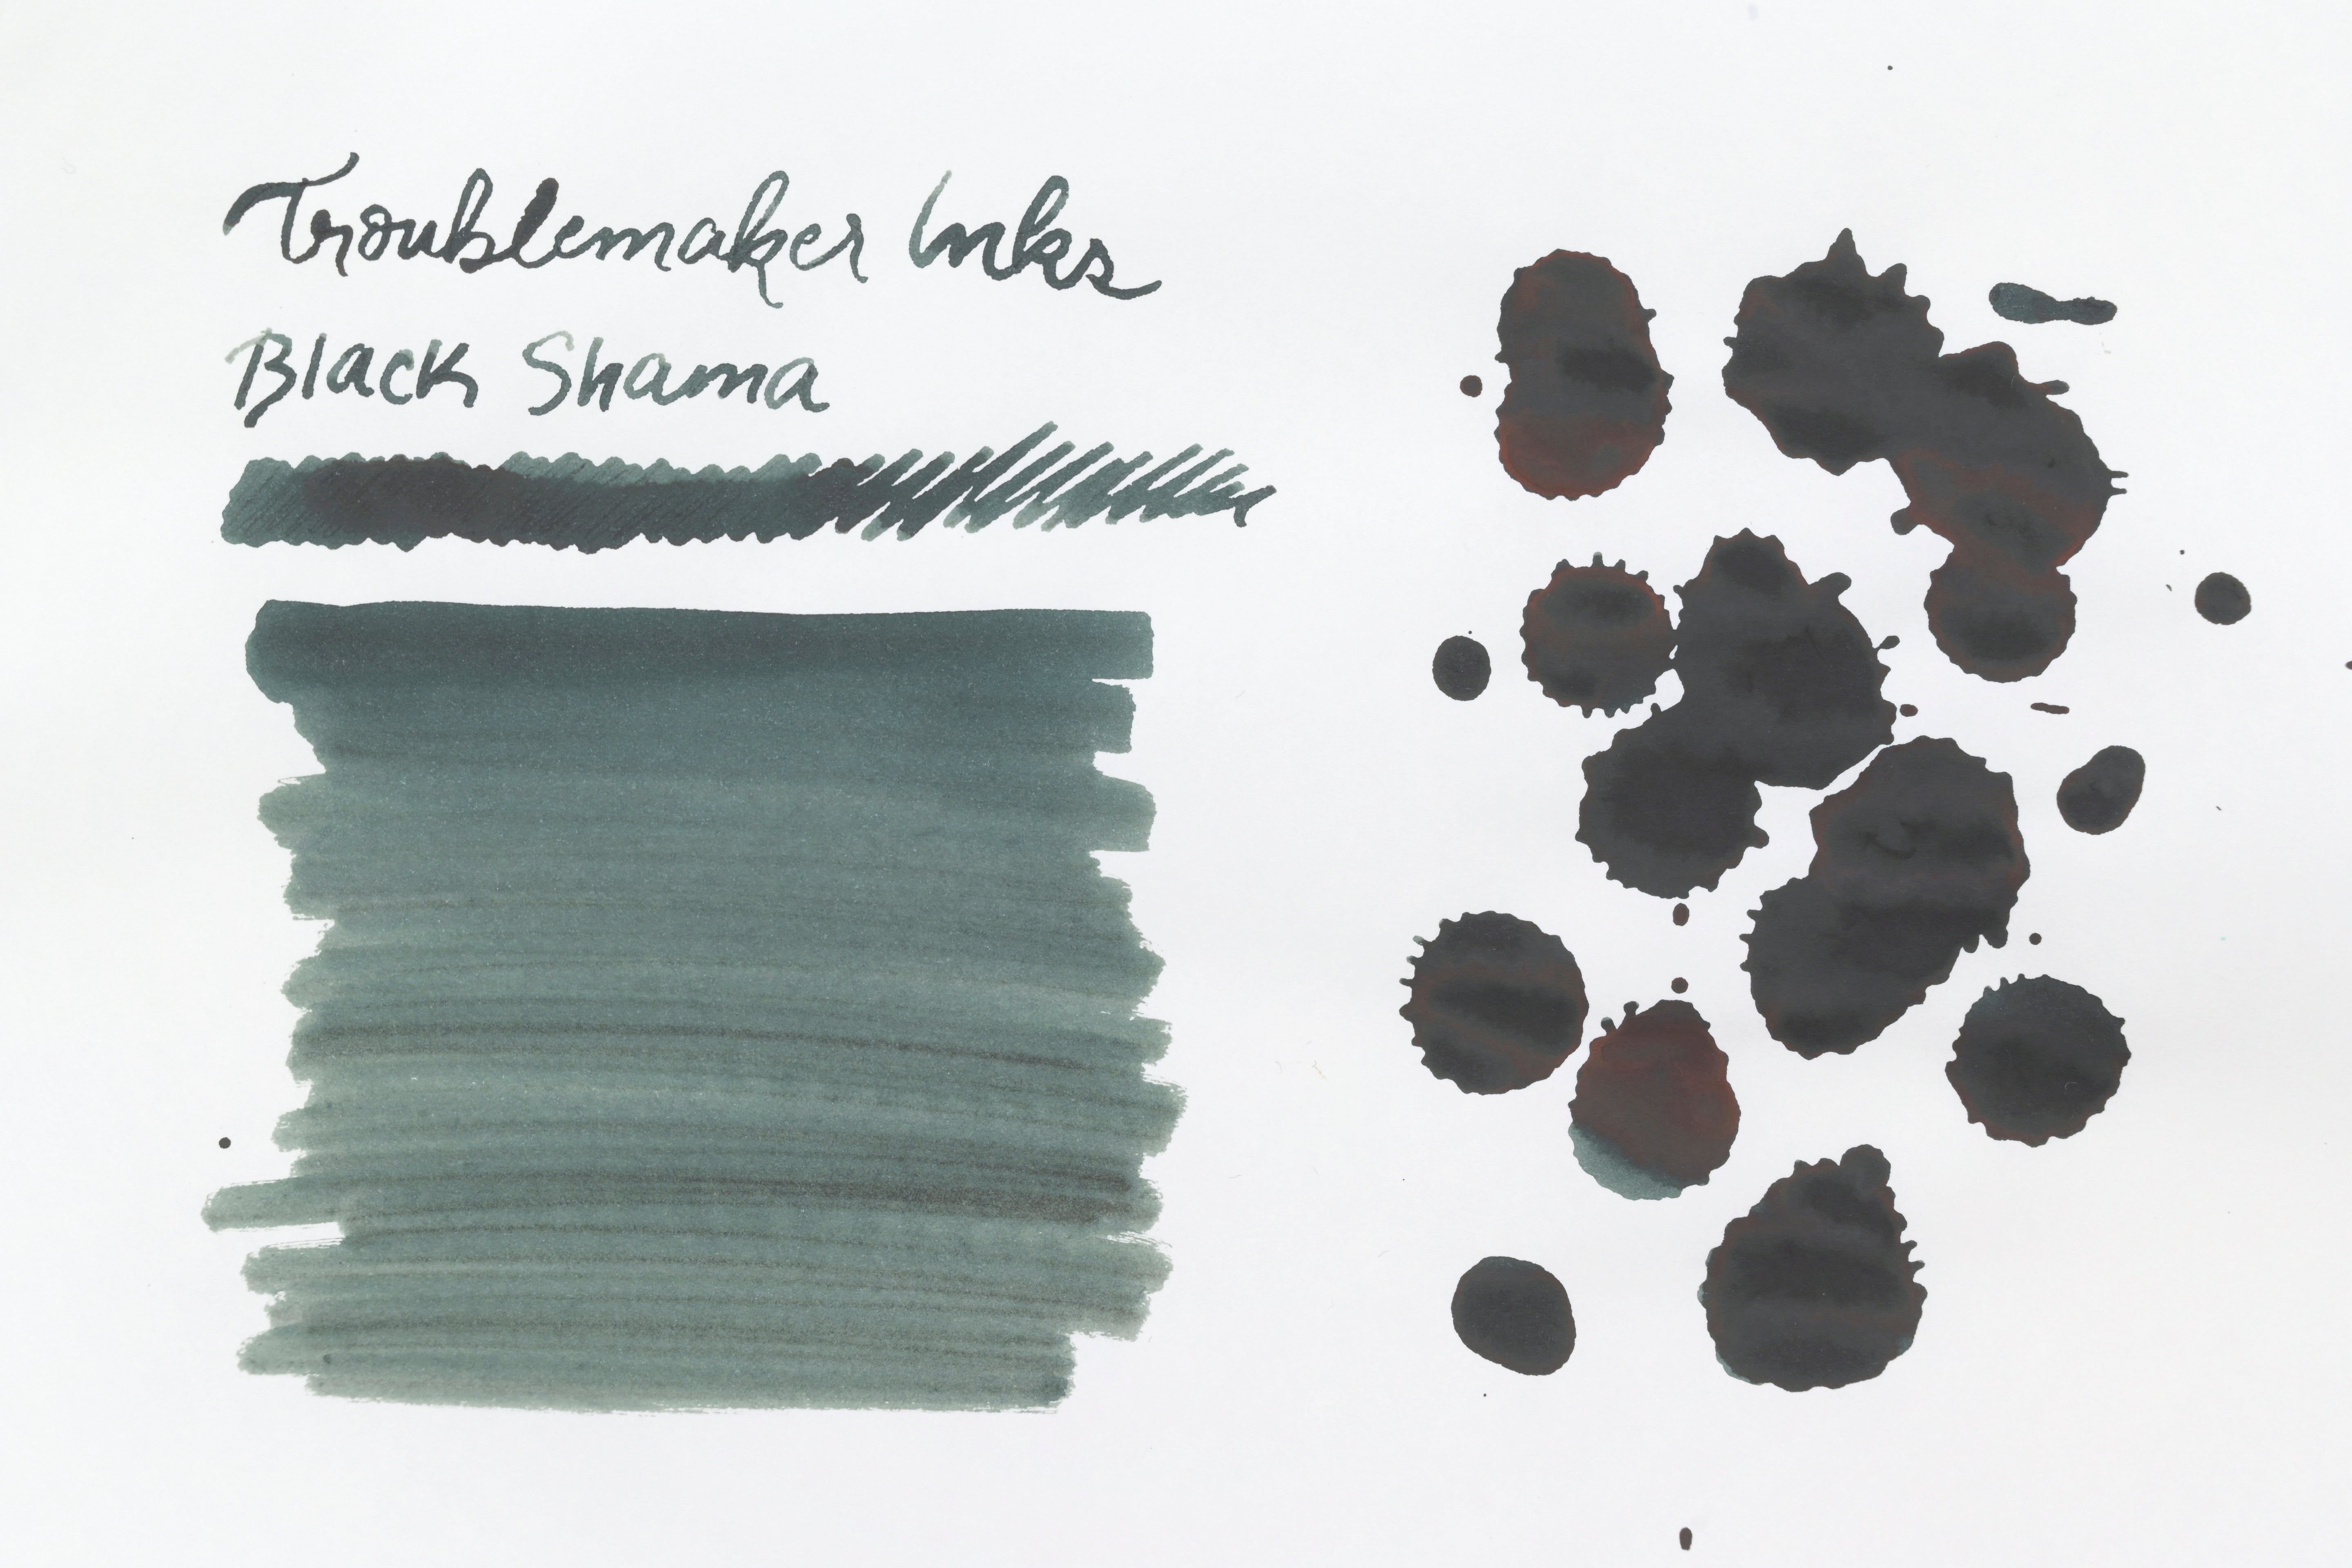 Troublemaker Inks
Black Shama